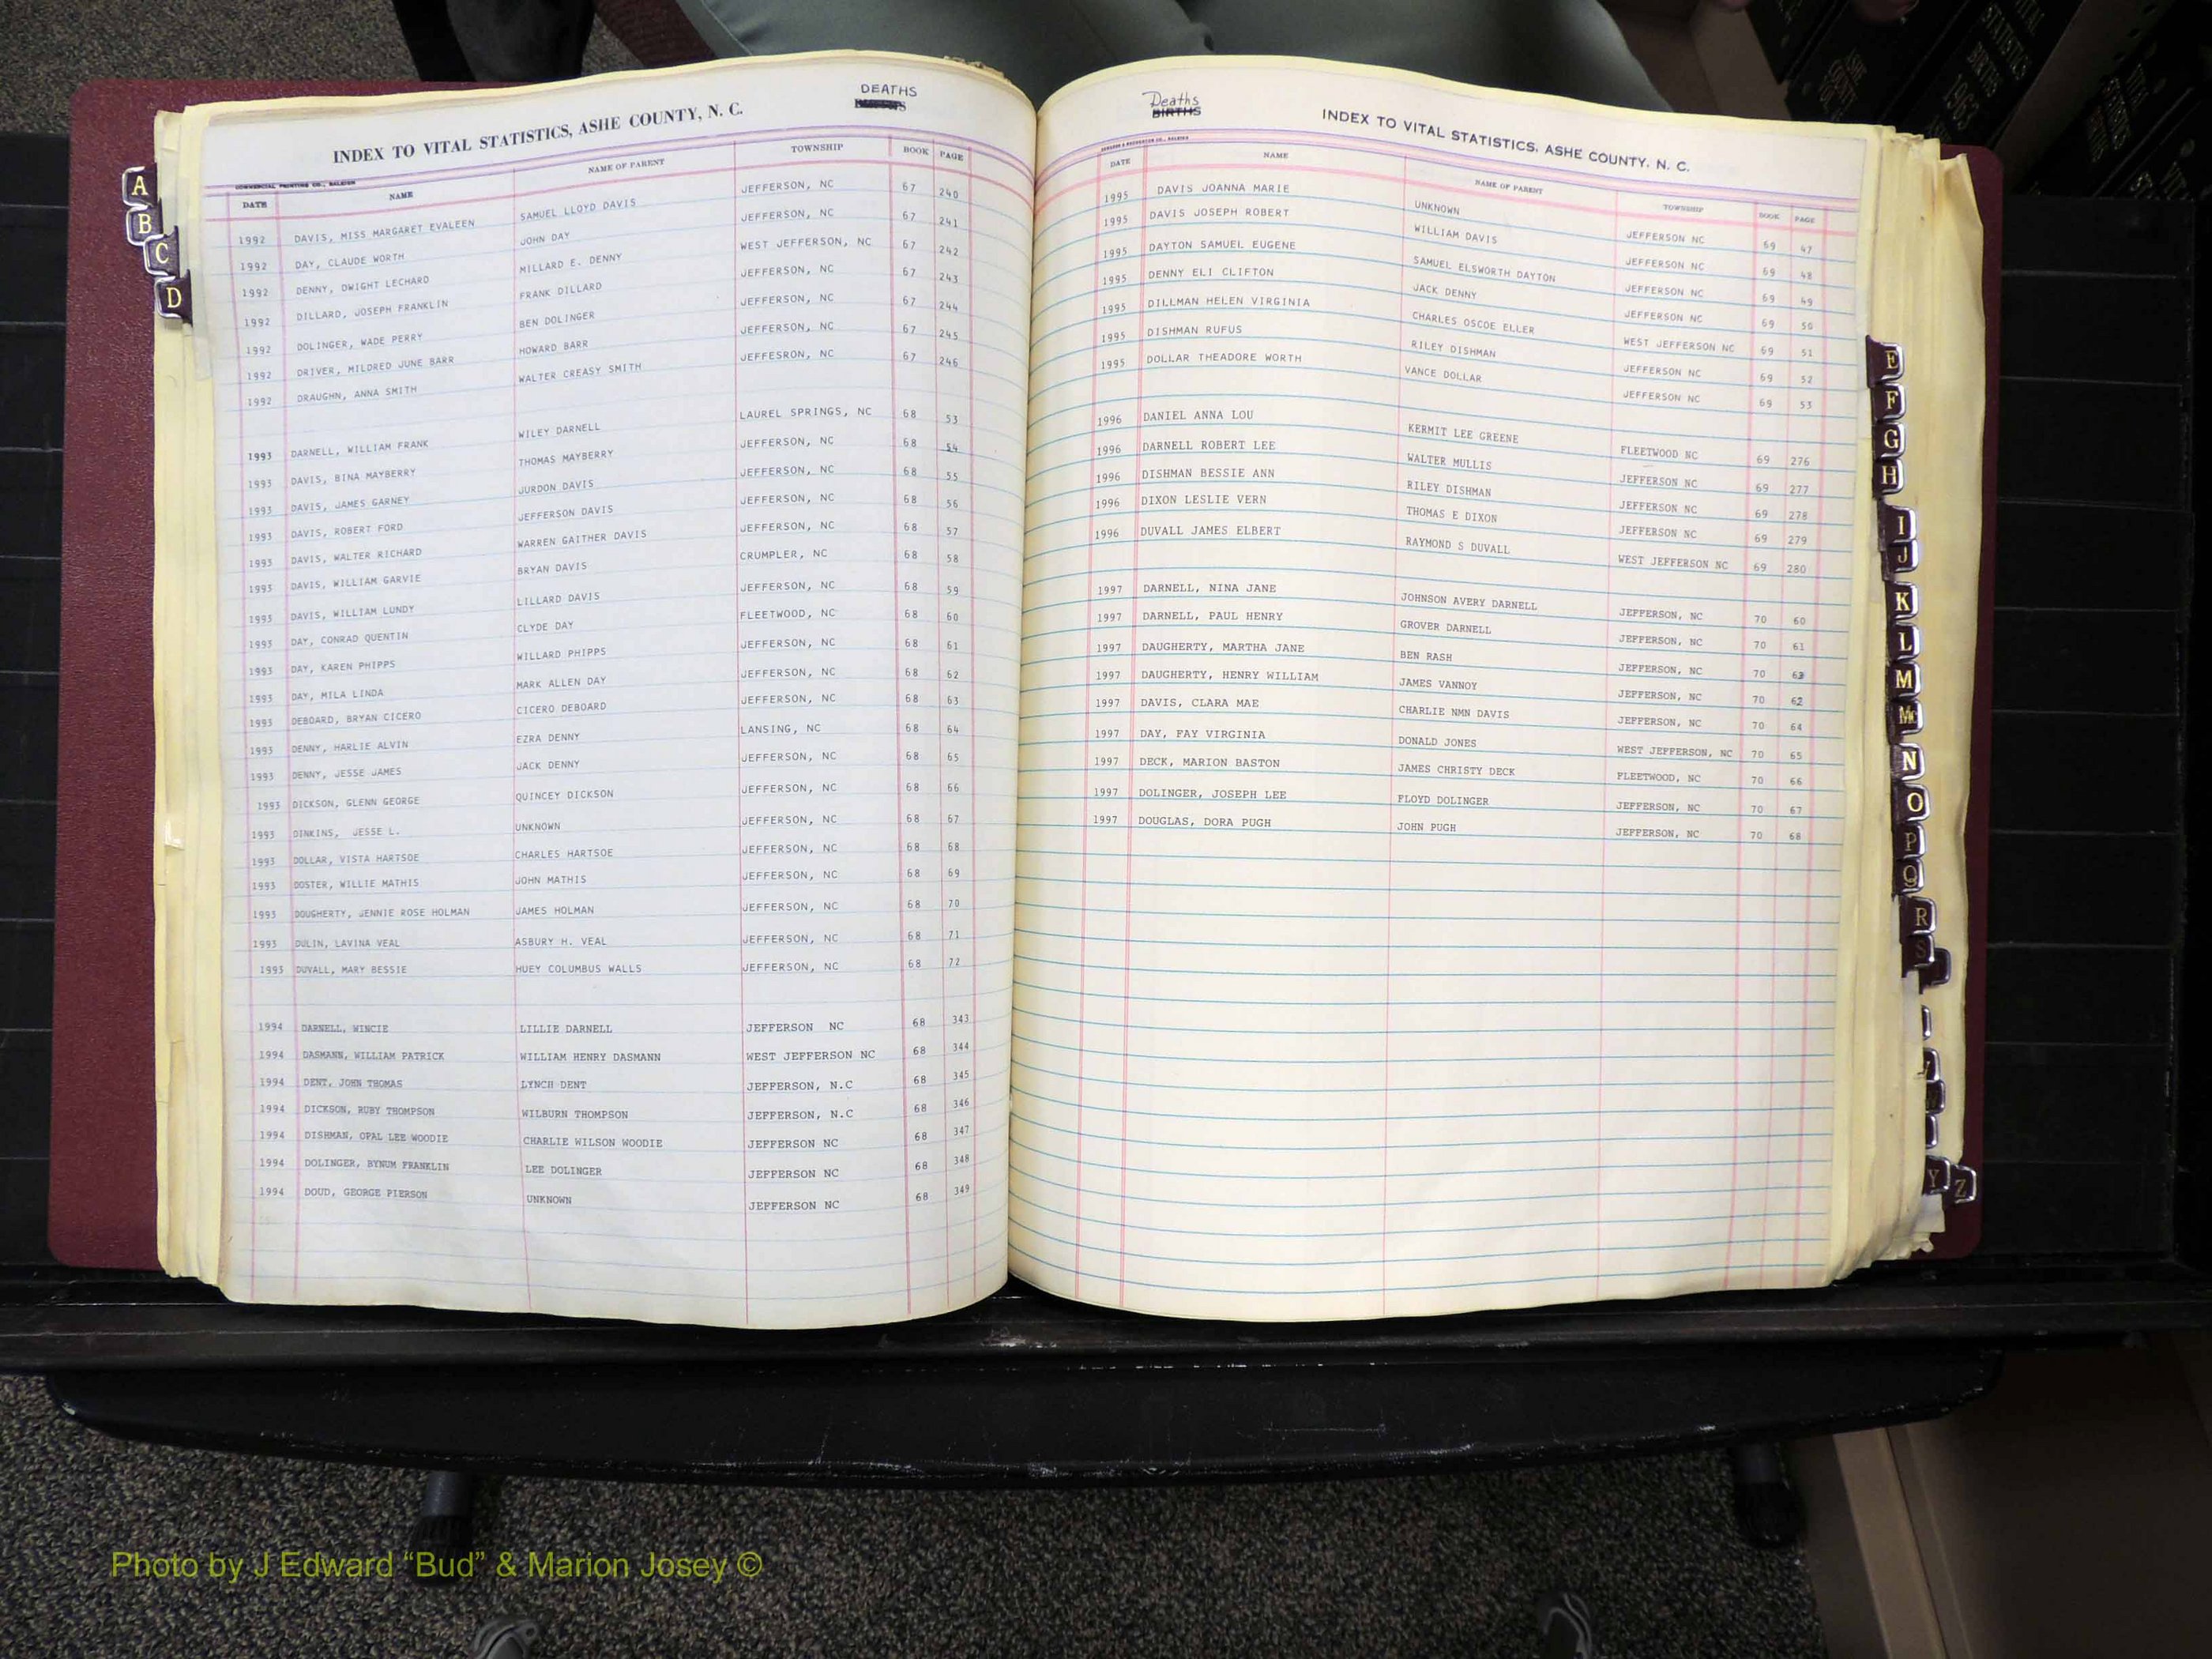 DEATHS
INDEX TO VITAL STATISTICS, ASHE COUNTY, N. C.
COMMERCIAL PRINTING CO., RALEIGH
DATE NAME NAME OF PARENT TOWNSHIP BOOK PAGE
1992 DAVIS, MISS MARGARET EVALEEN SAMUEL LLOYD DAVIS JEFFERSON, NC 67 240
1992 DAY, CLAUDE WORTH JOHN DAY JEFFERSON, NC 67 241
1992 DENNY, DWIGHT LECHARD MILLARD E. DENNY WEST JEFFERSON, NC 67 242
1992 DILLARD, JOSEPH FRANKLIN FRANK DILLARD JEFFERSON, NC 67 243
1992 DOLINGER, WADE PERRY BEN DOLINGER JEFFERSON, NC 67 244
1992 DRIVER, MILDRED JUNE BARR HOWARD BARR JEFFERSON, NC 67 245
1992 DRAUGHN, ANNA SMITH WALTER CREASY SMITH JEFFESRON, NC 67 246
1993 DARNELL, WILLIAM FRANK WILEY DARNELL LAUREL SPRINGS, NC 68 53
1993 DAVIS, BINA MAYBERRY THOMAS MAYBERRY JEFFERSON, NC 68 54
1993 DAVIS, JAMES GARNEY JURDON DAVIS JEFFERSON, NC 68 55
1993 DAVIS, ROBERT FORD JEFFERSON DAVIS JEFFERSON, NC 68 56
1993 DAVIS, WALTER RICHARD WARREN GAITHER DAVIS JEFFERSON, NC 68 57
1993 DAVIS, WILLIAM GARVIE BRYAN DAVIS CRUMPLER, NC 68 58
1993 DAVIS, WILLIAM LUNDY LILLARD DAVIS JEFFERSON, NC 68 59
1993 DAY, CONRAD QUENTIN CLYDE DAY FLEETWOOD, NC 68 60
1993 DAY, KAREN PHIPPS WILLARD PHIPPS JEFFERSON, NC 68 61
1993 DAY, MILA LINDA MARK ALLEN DAY JEFFERSON, NC 68 62
1993 DEBOARD, BRYAN CICERO CICERO DEBOARD JEFFERSON, NC 68 63
1993 DENNY, HARLIE ALVIN EZRA DENNY LANSING, NC 68 64
1993 DENNY, JESSE JAMES JACK DENNY JEFFERSON, NC 68 65
1993 DICKSON, GLENN GEORGE QUINCEY DICKSON JEFFERSON, NC 68 66
1993 DINKINS, JESSE L. UNKNOWN JEFFERSON, NC 68 67
1993 DOLLAR, VISTA HARTSOE CHARLES HARTSOE JEFFERSON, NC 68 68
1993 DOSTER, WILLIE MATHIS JOHN MATHIS JEFFERSON, NC 68 69
1993 DOUGHERTY, JENNIE ROSE HOLMAN JAMES HOLMAN JEFFERSON, NC 68 70
1993 DULIN, LAVINA VEAL ASBURY H. VEAL JEFFERSON, NC 68 71
1993 DUVALL, MARY BESSIE HUEY COLUMBUS WALLS JEFFERSON, NC 68 72
1994 DARNELL, WINCIE LILLIE DARNELL JEFFERSON NC 68 343
1994 DASMANN, WILLIAM PATRICK WILLIAM HENRY DASMANN WEST JEFFERSON NC 68 344
1994 DENT, JOHN THOMAS LYNCH DENT JEFFERSON, N.C 68 345
1994 DICKSON, RUBY THOMPSON WILBURN THOMPSON JEFFERSON, N.C 68 346
1994 DISHMAN, OPAL LEE WOODIE CHARLIE WILSON WOODIE JEFFERSON NC 68 347
1994 DOLINGER, BYNUM FRANKLIN LEE DOLINGER JEFFERSON NC 68 348
1994 DOUD, GEORGE PIERSON UNKNOWN JEFFERSON NC 68 349
A
B
C
D
Deaths
BIRTHS
INDEX TO VITAL STATISTICS, ASHE COUNTY, N. C.
DATE NAME NAME OF PARENT TOWNSHIP BOOK PAGE
1995 DAVIS JOANNA MARIE UNKNOWN JEFFERSON NC 69 47
1995 DAVIS JOSEPH ROBERT WILLIAM DAVIS JEFFERSON NC 69 48
1995 DAYTON SAMUEL EUGENE SAMUEL ELSWORTH DAYTON JEFFERSON NC 69 49
1995 DENNY ELI CLIFTON JACK DENNY JEFFERSON NC 69 50
1995 DILLMAN HELEN VIRGINIA CHARLES OSCOE ELLER WEST JEFFERSON NC 69 51
1995 DISHMAN RUFUS RILEY DISHMAN JEFFERSON NC 69 52
1995 DOLLAR THEADORE WORTH VANCE DOLLAR JEFFERSON NC 69 53
1996 DANIEL ANNA LOU KERMIT LEE GREENE FLEETWOOD NC 69 276
1996 DARNELL ROBERT LEE WALTER MULLIS JEFFERSON NC 69 277
1996 DISHMAN BESSIE ANN RILEY DISHMAN JEFFERSON NC 69 278
1996 DIXON LESLIE VERN THOMAS E DIXON JEFFERSON NC 69 279
1996 DUVALL JAMES ELBERT RAYMOND S DUVALL WEST JEFFERSON NC 69 280
1997 DARNELL, NINA JANE JOHNSON AVERY DARNELL JEFFERSON, NC 70 60
1997 DARNELL, PAUL HENRY GROVER DARNELL JEFFERSON, NC 70 61
1997 DAUGHERTY, MARTHA JANE BEN RASH JEFFERSON, NC 70 63
1997 DAUGHERTY, HENRY WILLIAM JAMES VANNOY JEFFERSON, NC 70 62
1997 DAVIS, CLARA MAE CHARLIE NMN DAVIS JEFFERSON, NC 70 64
1997 DAY, FAY VIRGINIA DONALD JONES WEST JEFFERSON, NC 70 65
1997 DECK, MARION BASTON JAMES CHRISTY DECK FLEETWOOD, NC 70 66
1997 DOLINGER, JOSEPH LEE FLOYD DOLINGER JEFFERSON, NC 70 67
1997 DOUGLAS, DORA PUGH JOHN PUGH JEFFERSON, NC 70 68
E
F
G
H
I
J
K
L
M
Mc
N
O
P
Q
R
S
Y
Z
VITAL STATISTICS BIRTHS 196
Photo by J Edward “Bud” & Marion Josey ©